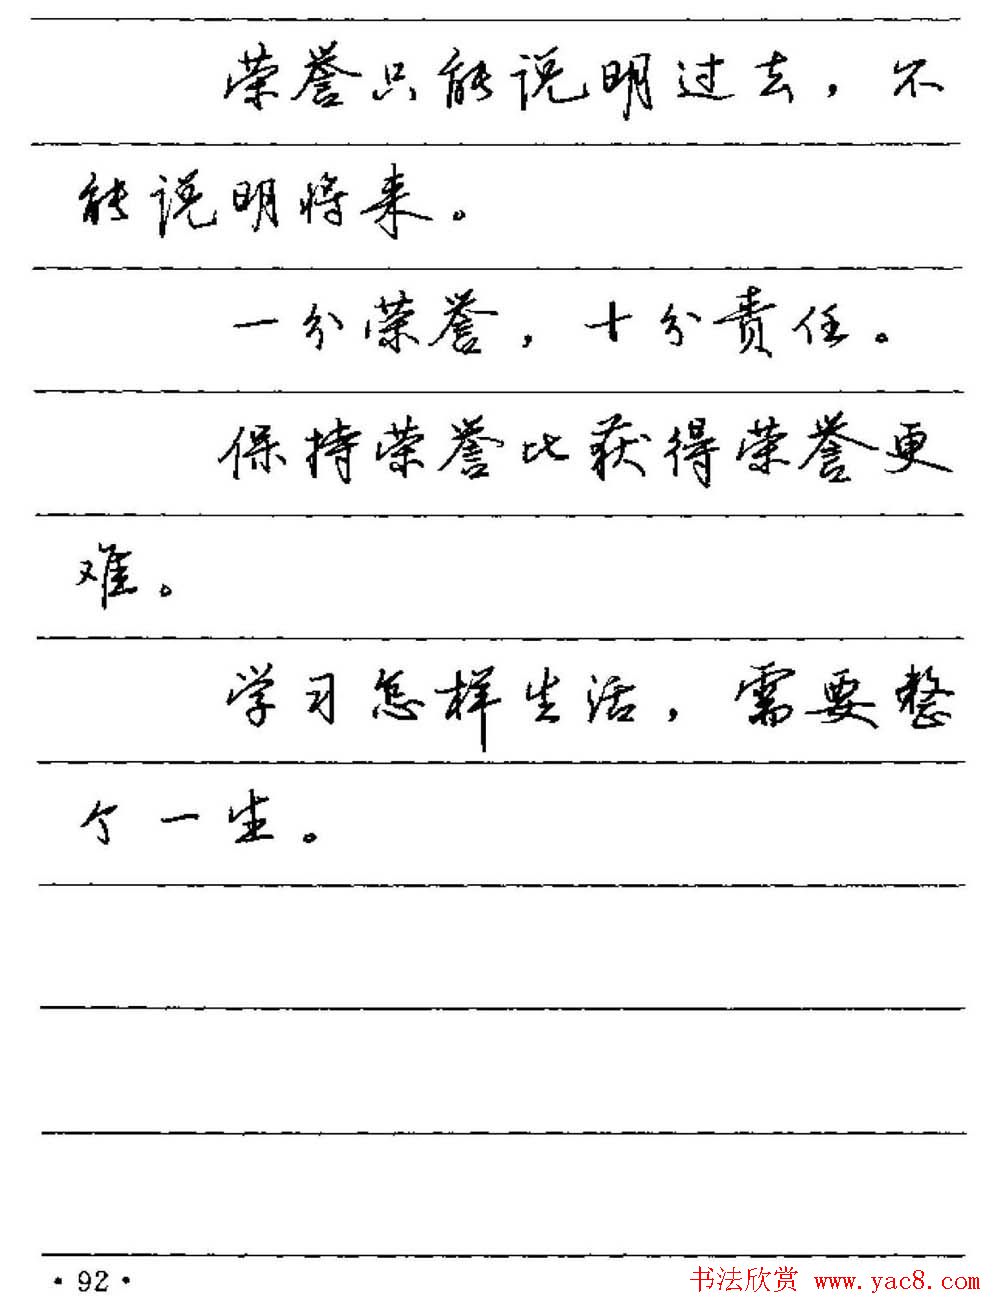 荣誉只能说明过去，不
能说明将来。
一分荣誉，十分责任。
保持荣誉比获得荣誉更
难。
学习怎样生活，需要整
个一生。
·92·
书法欣赏 www.yac8.com